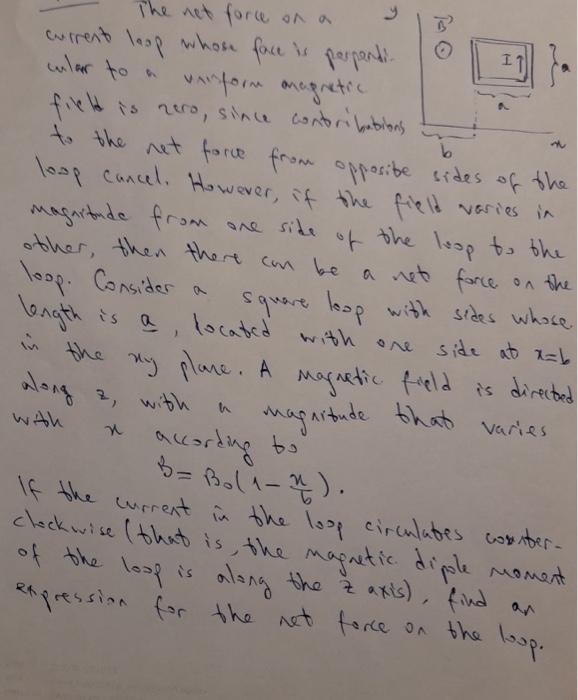 The net force on a
current loop whose face is perpendi-
cular to a uniform magnetic
field is zero, since contributions
to the net force from opposite sides of the
loop cancel. However, if the field varies in
magnitude from one side of the loop to the
other, then there can be a net force on the
loop. Consider a square loop with sides whose
length is a, located with one side at x=b
in the xy plane. A magnetic field is directed
along z, with a magnitude that varies
with x according to
B = B₀(1 - x/b).
If the current in the loop circulates counter-
clockwise (that is, the magnetic diple moment
of the loop is along the z axis), find an
expression for the net force on the loop.
y
B⃗
I↑
a
a
b
x